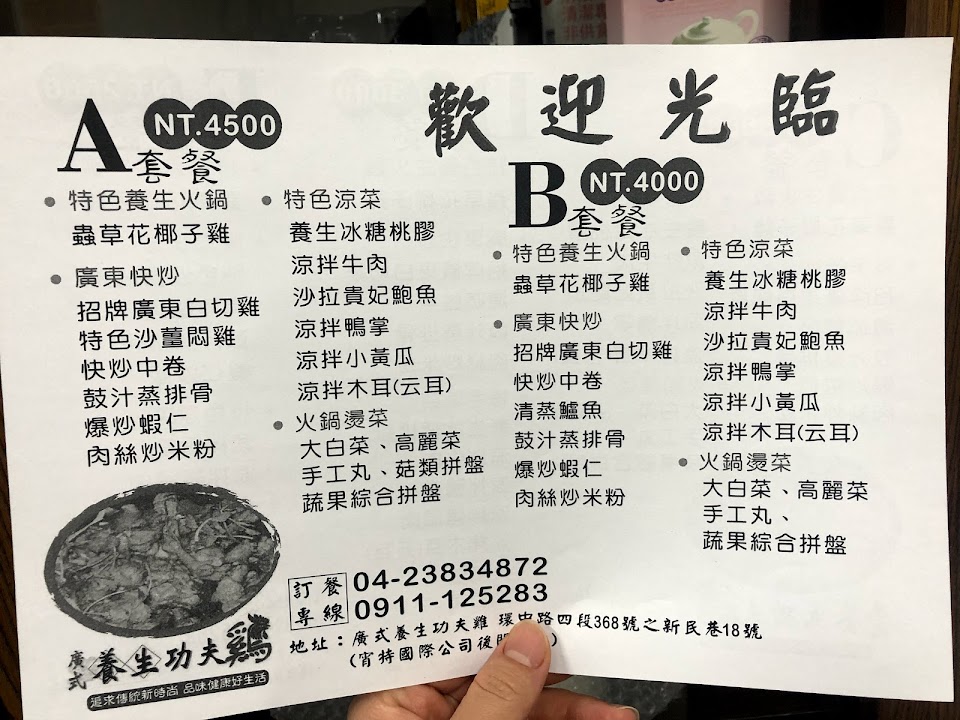 歡迎光臨
A 套餐 NT.4500
特色養生火鍋
蟲草花椰子雞
廣東快炒
招牌廣東白切雞
特色沙薑悶雞
快炒中卷
鼓汁蒸排骨
爆炒蝦仁
肉絲炒米粉
特色涼菜
養生冰糖桃膠
涼拌牛肉
沙拉貴妃鮑魚
涼拌鴨掌
涼拌小黃瓜
涼拌木耳(云耳)
火鍋燙菜
大白菜、高麗菜
手工丸、菇類拼盤
蔬果綜合拼盤
B 套餐 NT.4000
特色養生火鍋
蟲草花椰子雞
廣東快炒
招牌廣東白切雞
快炒中卷
清蒸鱸魚
鼓汁蒸排骨
爆炒蝦仁
肉絲炒米粉
特色涼菜
養生冰糖桃膠
涼拌牛肉
沙拉貴妃鮑魚
涼拌鴨掌
涼拌小黃瓜
涼拌木耳(云耳)
火鍋燙菜
大白菜、高麗菜
手工丸、
蔬果綜合拼盤
廣式養生功夫雞
追求傳統新時尚 品味健康好生活
訂餐專線
04-23834872
0911-125283
地址：廣式養生功夫雞 環中路四段368號之新民巷18號
(宵特國際公司後門